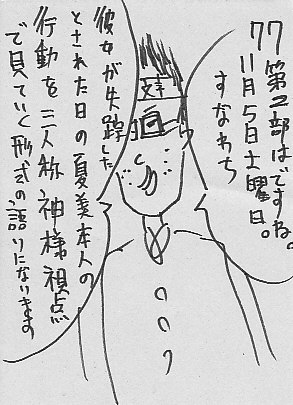 77 第二部はですね。
11月5日土曜日。
すなわち
彼女が失踪した
とされた日の夏美本人の
行動を三人称神様視点
で見ていく形式の語りになります